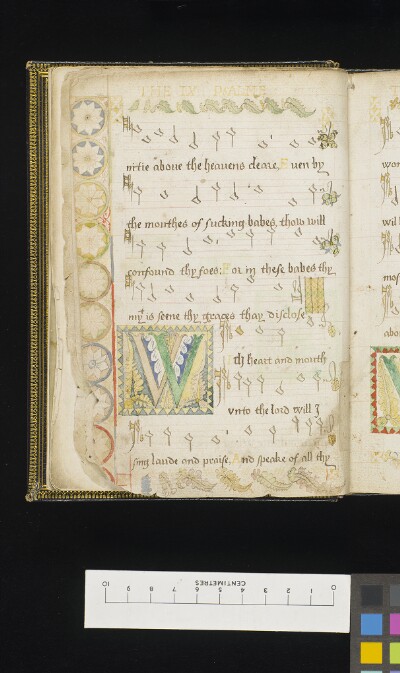 THE IX PSALME
nitie above the heavens cleare, Even by
the mouthes of sucking babes, thow will
confound thy foes: For in these babes thy
might is seene thy graces thay disclose
With heart and mouth
vnto the lord will I
sing laude and praise, And speake of all thy
wor
will
mos
abo
CENTIMETRES
0 1 2 3 4 5 6 7 8 9 10